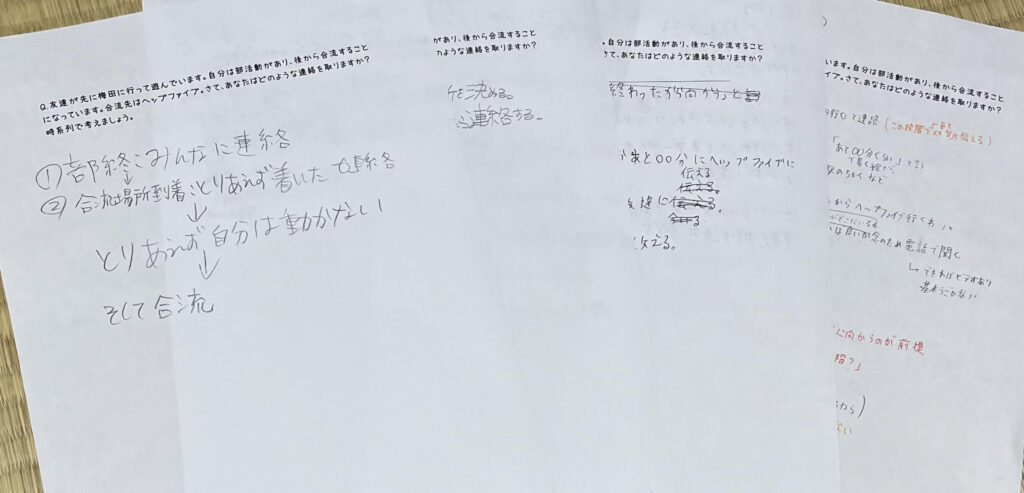 Q.友達が先に梅田に行って遊んでいます。自分は部活動があり、後から合流すること
になっています。合流先はヘップファイブ。さて、あなたはどのような連絡を取りますか?
時系列で考えましょう。
①部終:みんなに連絡
↓
②合流場所到着:とりあえず着いた 連絡
↓
とりあえず自分は動かない
↓
そして合流
があり、後から合流すること
のような連絡を取りますか?
を決める。
連絡する。
。自分は部活動があり、後から合流すること
さて、あなたはどのような連絡を取りますか?
終わったから向かう」と
あと〇〇分にヘップファイブに
伝える
伝える。
友達に伝える。
います。自分は部活動があり、後から合流すること
イブ。さて、あなたはどのような連絡を取りますか?
行く」と連絡(この段階で
伝える)
「あと〇〇分くらい」と
など
からヘップファイブ行くわ
念のため電話で聞く
↳できればビデオあり
に向かうのが前提
階?」
から)